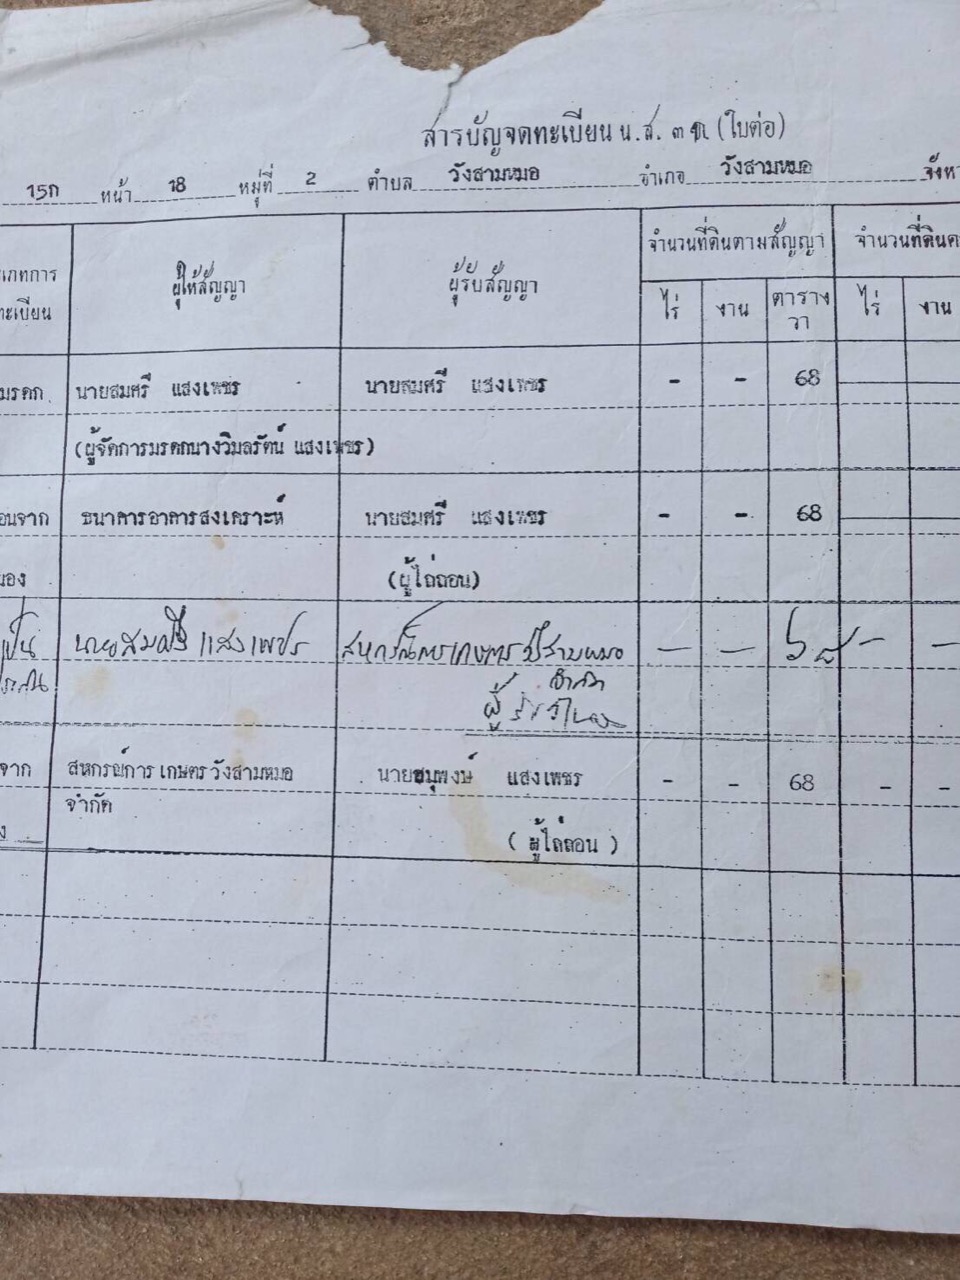 สารบัญจดทะเบียน น.ส. ๓ ก. (ใบต่อ)
15ก หน้า 18 หมู่ที่ 2 ตำบล วังสามหมอ อำเภอ วังสามหมอ จังห
จำนวนที่ดินตามสัญญา จำนวนที่ดินค
เภทการ ผู้ให้สัญญา ผู้รับสัญญา
ทะเบียน ไร่ งาน ตาราง ไร่ งาน
วา
มรดก นายสมศรี แสงเพชร นายสมศรี แสงเพชร - - 68
(ผู้จัดการมรดกนางวิมลรัตน์ แสงเพชร)
อนจาก ธนาคารอาคารสงเคราะห์ นายสมศรี แสงเพชร - - 68
นอง (ผู้ไถ่ถอน)
เป็น นายสมศรี แสงเพชร สหกรณ์การเกษตรวังสามหมอ - - 68 - -
ประกัน จำกัด
ผู้รับจำนอง
จาก สหกรณ์การเกษตรวังสามหมอ นายสมพงษ์ แสงเพชร - - 68 - -
จำกัด
ง (ผู้ไถ่ถอน)